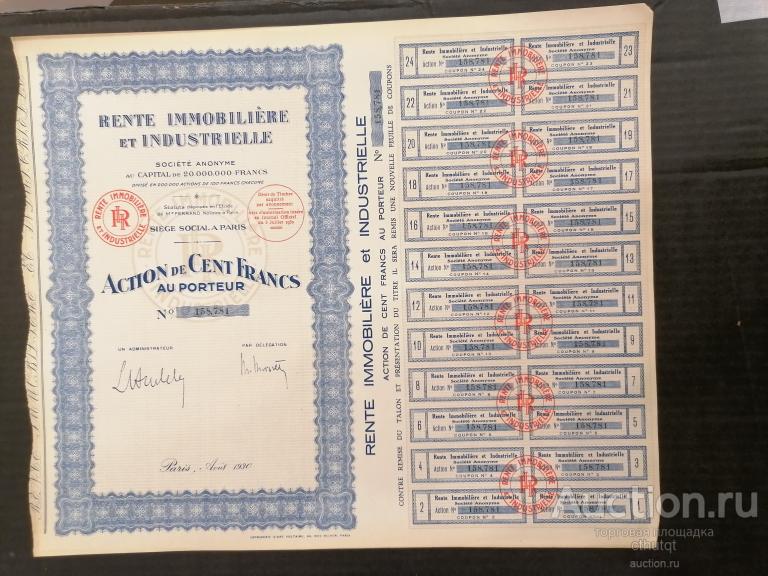 RENTE IMMOBILIÈRE
ET INDUSTRIELLE
SOCIÉTÉ ANONYME
AU CAPITAL DE 20.000.000 FRANCS
DIVISÉ EN 200.000 ACTIONS DE 100 FRANCS CHACUNE
Statuts déposés en l'Etude
de Me FERRAND Notaire à Paris
SIÈGE SOCIAL A PARIS
RENTE IMMOBILIÈRE
ET INDUSTRIELLE
RI
Droit de Timbre
acquitté
par abonnement
Avis d'autorisation inséré
au Journal Officiel
ACTION DE CENT FRANCS
AU PORTEUR
No 158,781
UN ADMINISTRATEUR
PAR DÉLÉGATION
Paris, Août 1930
IMPRIMERIE D'ART VOLTAIRE, PARIS
RENTE IMMOBILIÈRE et INDUSTRIELLE
ACTION DE CENT FRANCS AU PORTEUR No 158,781
CONTRE REMISE DU TALON ET PRÉSENTATION DU TITRE IL SERA REMIS UNE NOUVELLE FEUILLE DE COUPONS
24 Rente Immobilière et Industrielle
Société Anonyme
Action No 158,781
Rente Immobilière et Industrielle 23
Société Anonyme
Action No 158,781
COUPON No 23
22 Rente Immobilière et Industrielle
Société Anonyme
Action No 158,781
COUPON No 22
Rente Immobilière et Industrielle 21
Société Anonyme
Action No 158,781
COUPON No 21
20 Rente Immobilière et Industrielle
Société Anonyme
Action No 158,781
COUPON No 20
Rente Immobilière et Industrielle 19
Société Anonyme
Action No 158,781
COUPON No 19
18 Rente Immobilière et Industrielle
Société Anonyme
Action No 158,781
COUPON No 18
Rente Immobilière et Industrielle 17
Société Anonyme
Action No 158,781
COUPON No 17
16 Rente Immobilière et Industrielle
Société Anonyme
Action No 158,781
COUPON No 16
Rente Immobilière et Industrielle 15
Société Anonyme
Action No 158,781
COUPON No 15
14 Rente Immobilière et Industrielle
Société Anonyme
Action No 158,781
COUPON No 14
Rente Immobilière et Industrielle 13
Société Anonyme
Action No 158,781
COUPON No 13
12 Rente Immobilière et Industrielle
Société Anonyme
Action No 158,781
COUPON No 12
Rente Immobilière et Industrielle 11
Société Anonyme
Action No 158,781
COUPON No 11
10 Rente Immobilière et Industrielle
Société Anonyme
Action No 158,781
COUPON No 10
Rente Immobilière et Industrielle 9
Société Anonyme
Action No 158,781
COUPON No 9
8 Rente Immobilière et Industrielle
Société Anonyme
Action No 158,781
COUPON No 8
Rente Immobilière et Industrielle 7
Société Anonyme
Action No 158,781
COUPON No 7
6 Rente Immobilière et Industrielle
Société Anonyme
Action No 158,781
COUPON No 6
Rente Immobilière et Industrielle 5
Société Anonyme
Action No 158,781
COUPON No 5
4 Rente Immobilière et Industrielle
Société Anonyme
Action No 158,781
COUPON No 4
Rente Immobilière et Industrielle 3
Société Anonyme
Action No 158,781
COUPON No 3
2 Rente Immobilière et Industrielle
Société Anonyme
Action No 158,781
COUPON No 2
Rente Immobilière et Industrielle 1
Auction.ru
торговая площадка
cthutqt
auction.ru